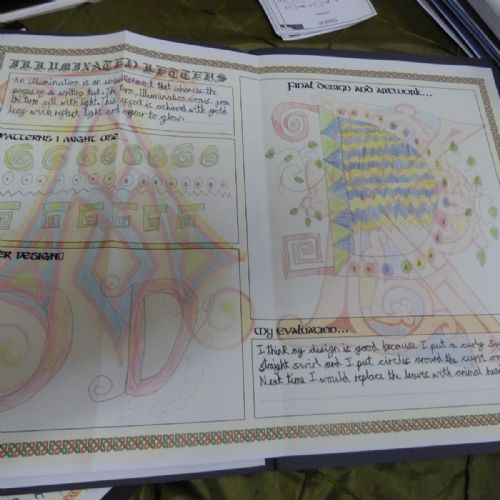 ILLUMINATED LETTERS
An illumination is an embellishment that enhances the
pages of a writing text. The term, illumination comes from
the term gill with light. This effect is achieved with gold
leaf which reflect light and appear to glow.
PATTERNS I MIGHT USE...
ER DESIGN
FINAL DESIGN AND ARTWORK...
MY EVALUATION...
I think my design is good because I put a curly swirl
straight swirl and I put circles around the
Next time I would replace the leaves with animal heads